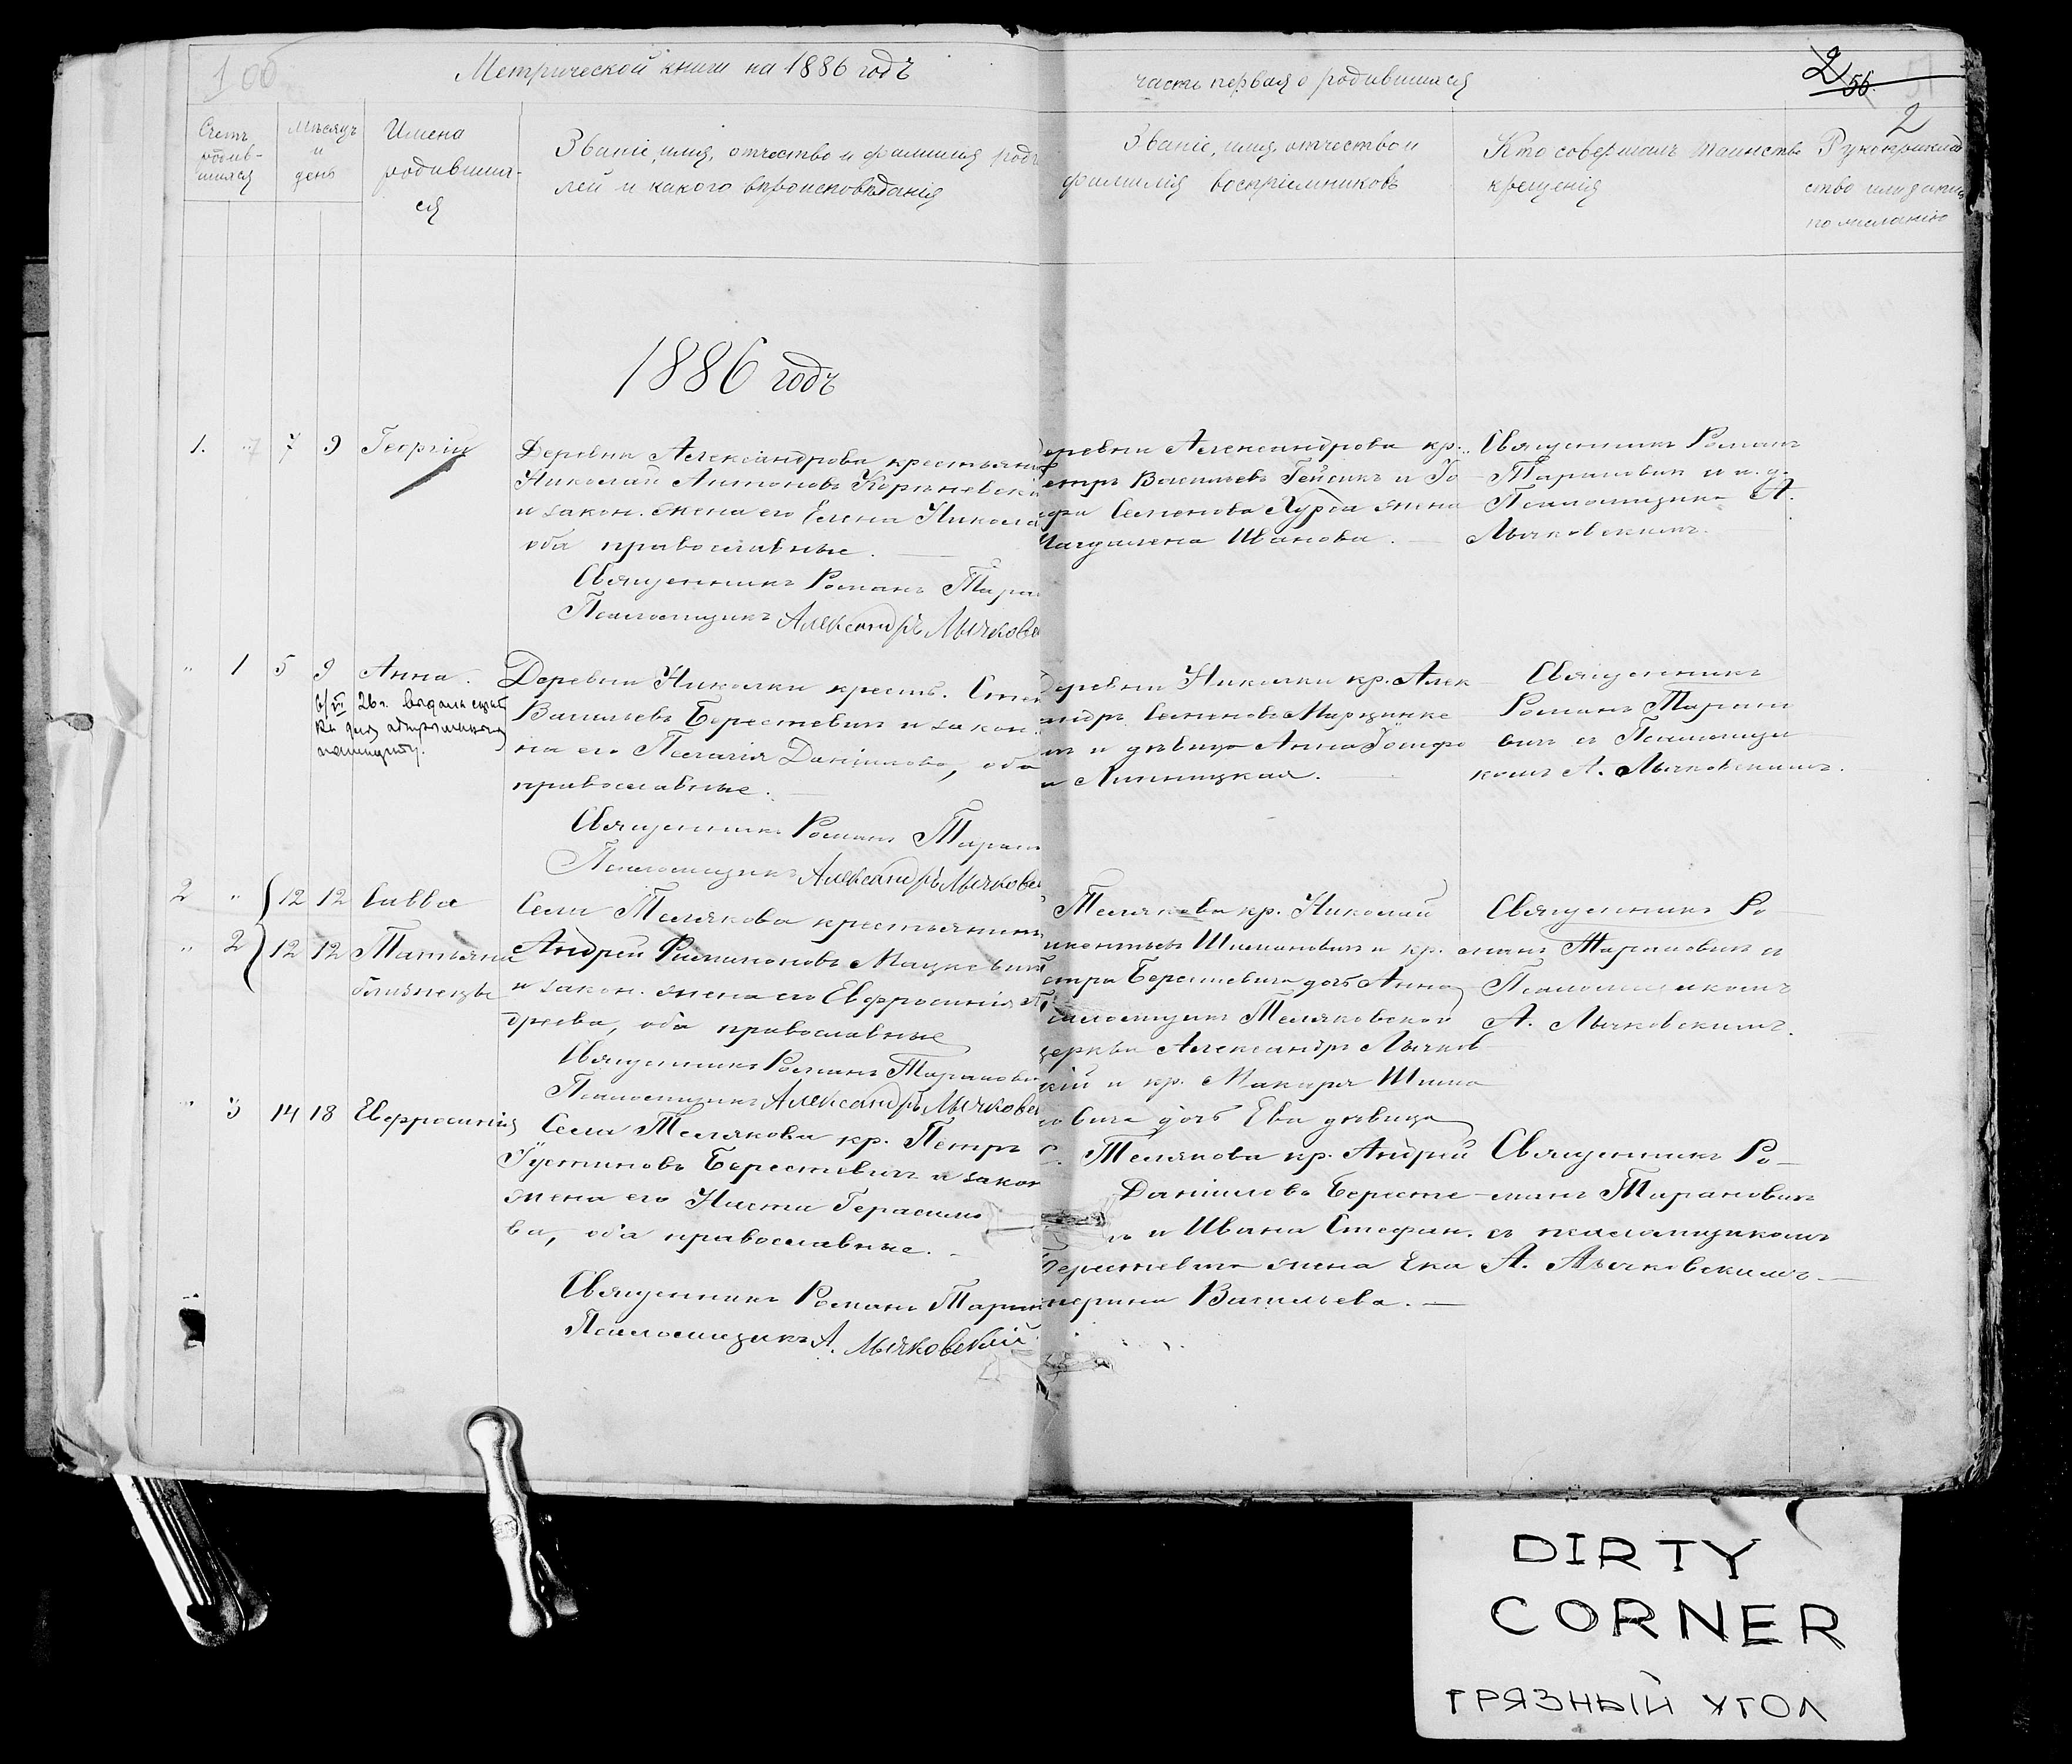 1 об
Метрической книги на 1886 годъ
часть первая о родившихся
2
56
2
Счетъ родив-шихся
Мѣсяцъ и день
Имена родивших-ся
Званіе, имя, отчество и фамилія род
лей и какого вѣроисповѣданія
Званіе, имя, отчество и
фамилія воспріемниковъ
Кто совершалъ таинство
крещенія
Рукоприклад
ство
по желанію
1886 годъ
1. 7 9 Георгій
Деревни Александрова крестьянинъ
Николай Антоновъ
и закон. жена его Елена Никола
оба православные.
Священникъ Романъ Тара
Псаломщикъ Александръ Лычковс
еревни Александрова кр.
етръ Васильевъ и Іо
Семенова жена
Магдалена Иванова.
Священникъ Романъ
Тарановичъ и и. д.
Псаломщика А.
Лычковскимъ.
" 1 5 9 Анна.
26 г. выдана
Деревни Николки крест. Стеф
Васильевъ Берестевичъ и закон.
на его Пелагія Даніилова, оба
православные.
Священникъ Романъ Таран
Псаломщикъ Александръ Лычковс
Деревни Николки кр. Алек
андръ Семеновъ
и дѣвица Анна
Линницкая.
Священникъ
Романъ Таран
вичъ съ Псаломщи
комъ А. Лычковскимъ.
2 " 12 12 Савва
" 2 12 12 Татьяна
близнецы
Села Телякова крестьянинъ
Андрей Филимоновъ Мацкевичъ
и закон. жена его Евфросинія Ан
дреева, оба православные
Священникъ Романъ Таранови
Псаломщикъ Александръ Лычковс
Телякова кр. Николай
Шимановичъ и кр.
етра Берестевича дочь Анна
саломщикъ Теляковской
церкви Александръ Лычков
скій и кр. Макара Шима
новича дочь Ева дѣвица
Священникъ Ро
манъ Тарановичъ и
Псаломщикомъ
А. Лычковскимъ.
" 3 14 18 Евфросинія
Села Телякова кр. Петръ
Іустиновъ Берестевичъ и закон
жена его Настя Герасимо
ва, оба православные.
Священникъ Романъ Таран
Псаломщикъ А. Лычковскій
С. Телякова кр. Андрей
Даніиловъ Бересте-
и Ивана Стефан.
Берестевича жена Ека
терина Васильева.
Священникъ Ро-
манъ Тарановичъ
съ псаломщикомъ
А. Лычковскимъ.
DIRTY
CORNER
ГРЯЗНЫЙ УГОЛ